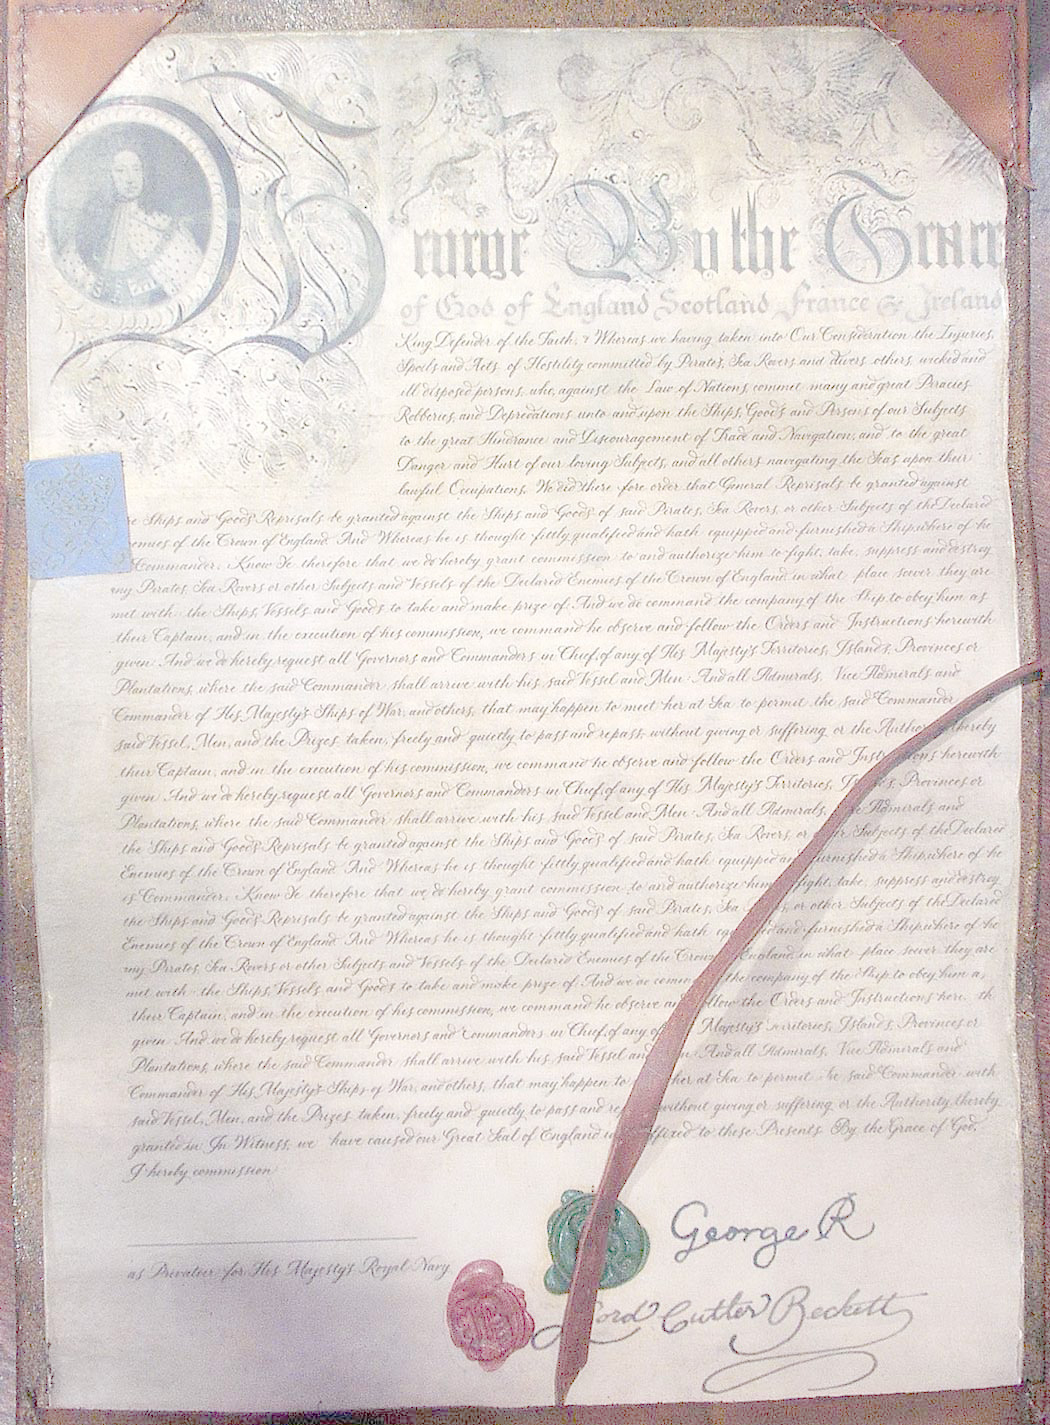 George By the Grace
of God of England Scotland France & Ireland
King Defender of the Faith, & Whereas we having taken into Our Consideration the Injuries,
Spoils and Acts of Hostility committed by Pirates, Sea Rovers and divers others, wicked and
ill disposed persons, who, against the Law of Nations, commit many and great Piracies
Robberies, and Depredations unto and upon the Ships, Goods and Persons of our Subjects
to the great Hindrance and Discouragement of Trade and Navigation, and to the great
Danger and Hurt of our loving Subjects, and all others navigating the Seas upon their
lawful Occupations, We did there fore order that General Reprisals be granted against
Ships and Goods Reprisals be granted against the Ships and Goods of said Pirates, Sea Rovers, or other Subjects of the Declared
of the Crown of England And Whereas he is thought fittly qualified and hath equipped and furnished a Ship where of he
Commander. Know Ye therefore that we do hereby grant commission to and authorize him to fight, take, suppress and destroy
my Pirates, Sea Rovers or other Subjects and Vessels of the Declared Enemies of the Crown of England in what place soever they are
met with the Ships, Vessels and Goods to take and make prize of. And we do command the company of the Ship to obey him as
their Captain, and in the execution of his commission, we command he observe and follow the Orders and Instructions herewith
given And we do hereby request all Governors and Commanders in Chief, of any of His Majesty's Territories, Islands, Provinces or
Plantations, where the said Commander shall arrive with his said Vessel and Men And all Admirals, Vice Admirals and
Commander of His Majesty's Ships of War, and others, that may happen to meet her at Sea to permit the said Commander
said Vessel, Men, and the Prizes taken, freely and quietly to pass and repass without giving or suffering or the thereby
their Captain, and in the execution of his commission, we command he observe and follow the Orders and herewith
given And we do hereby request all Governors and Commanders in Chief, of any of His Majesty's Territories, Provinces or
Plantations, where the said Commander shall arrive with his said Vessel and Men And all Admirals, Admirals and
the Ships and Goods Reprisals be granted against the Ships and Goods of said Pirates, Sea Rovers, or Subjects of the Declared
Enemies of the Crown of England And Whereas he is thought fittly qualified and hath equipped furnished a Ship where of he
is Commander. Know Ye therefore that we do hereby grant commission to and authorize him fight, take, suppress and destroy
the Ships and Goods Reprisals be granted against the Ships and Goods of said Pirates, Sea or other Subjects of the Declared
Enemies of the Crown of England And Whereas he is thought fittly qualified and hath and furnished a Ship where of he
my Pirates, Sea Rovers or other Subjects and Vessels of the Declared Enemies of the Crown England in what place soever they are
met with the Ships, Vessels and Goods to take and make prize of. And we do the company of the Ship to obey him as
their Captain, and in the execution of his commission, we command he observe the Orders and Instructions
given And we do hereby request all Governors and Commanders in Chief, of any of Majesty's Territories, Islands, Provinces or
Plantations, where the said Commander shall arrive with his said Vessel And all Admirals, Vice Admirals and
Commander of His Majesty's Ships of War, and others, that may happen to her at Sea to permit the said Commander with
said Vessel, Men, and the Prizes taken, freely and quietly to pass and without giving or suffering or the Authority thereby
granted in In Witness, we have caused our Great Seal of England affixed to these Presents By the Grace of God,
I hereby commission
George R
as Privateer for His Majesty's Royal Navy
Lord Cutler Beckett